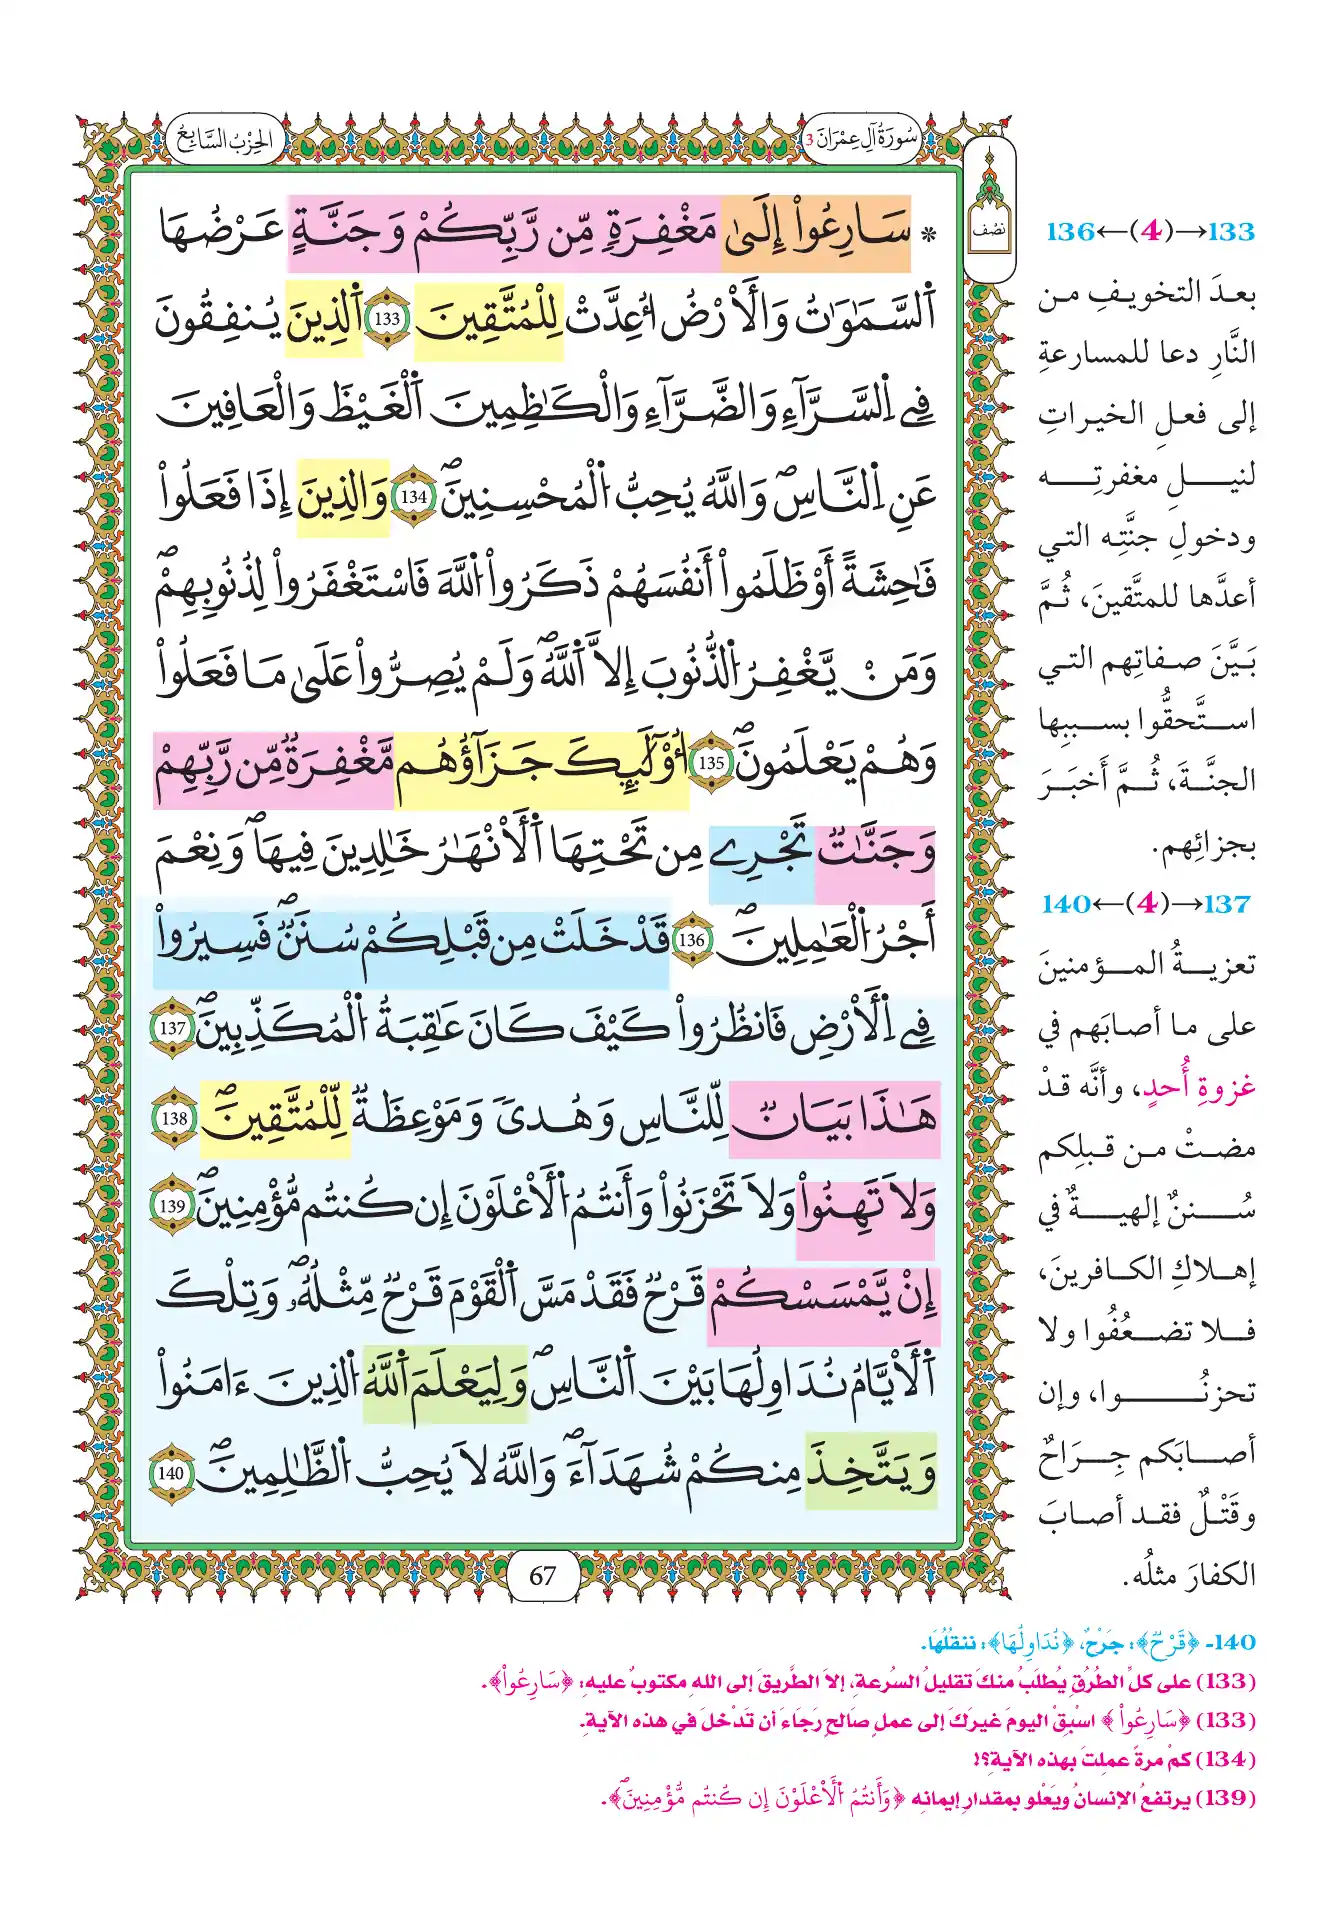 سُورَةُ آلِ عِمْرَانَ 3
الحِزْبُ السَّابِعُ
نصف
* سَارِعُوا۟ إِلَىٰ مَغْفِرَةٖ مِّن رَّبِّكُمْ وَجَنَّةٍ عَرْضُهَا
اَ۬لسَّمَٰوَٰتُ وَالَارْضُ أُعِدَّتْ لِلْمُتَّقِينَ 133 اَ۬لذِينَ يُنفِقُونَ
فِے اِ۬لسَّرَّآءِ وَالضَّرَّآءِ وَالْكَٰظِمِينَ اَ۬لْغَيْظَ وَالْعَافِينَ
عَنِ اِ۬لنَّاسِۖ وَاللَّهُ يُحِبُّ اُ۬لْمُحْسِنِينَۖ 134 وَالذِينَ إِذَا فَعَلُوا۟
فَٰحِشَةً أَوْ ظَلَمُوا۟ أَنفُسَهُمْ ذَكَرُوا۟ اُ۬للَّهَ فَاسْتَغْفَرُوا۟ لِذُنُوبِهِمْۖ
وَمَنْ يَّغْفِرُ اُ۬لذُّنُوبَ إِلَّا اَ۬للَّهُۖ وَلَمْ يُصِرُّوا۟ عَلَىٰ مَا فَعَلُوا۟
وَهُمْ يَعْلَمُونَۖ 135 أُوْلَٰٓئِكَ جَزَآؤُهُم مَّغْفِرَةٞ مِّن رَّبِّهِمْ
وَجَنَّٰتٞ تَجْرِے مِن تَحْتِهَا اَ۬لَانْهَٰرُ خَٰلِدِينَ فِيهَاۖ وَنِعْمَ
أَجْرُ اُ۬لْعَٰمِلِينَۖ 136 قَدْ خَلَتْ مِن قَبْلِكُمْ سُنَنٞۖ فَسِيرُوا۟
فِے اِ۬لَارْضِ فَانظُرُوا۟ كَيْفَ كَانَ عَٰقِبَةُ اُ۬لْمُكَذِّبِينَۖ 137
هَٰذَا بَيَانٞ لِّلنَّاسِ وَهُدىٗ وَمَوْعِظَةٞ لِّلْمُتَّقِينَۖ 138
وَلَا تَهِنُوا۟ وَلَا تَحْزَنُوا۟ وَأَنتُمُ اُ۬لَاعْلَوْنَ إِن كُنتُم مُّؤْمِنِينَۖ 139
إِنْ يَّمْسَسْكُمْ قَرْحٞ فَقَدْ مَسَّ اَ۬لْقَوْمَ قَرْحٞ مِّثْلُهُۥۖ وَتِلْكَ
اَ۬لَايَّامُ نُدَاوِلُهَا بَيْنَ اَ۬لنَّاسِۖ وَلِيَعْلَمَ اَ۬للَّهُ اُ۬لذِينَ ءَامَنُوا۟
وَيَتَّخِذَ مِنكُمْ شُهَدَآءَۖ وَاللَّهُ لَا يُحِبُّ اُ۬لظَّٰلِمِينَۖ 140
67
133→(4)←136
بعدَ التخويفِ من
النَّارِ دعا للمسارعةِ
إلى فعلِ الخيراتِ
لنيلِ مغفرتِه
ودخولِ جنَّتِه التي
أعدَّها للمتَّقينَ، ثُمَّ
بَيَّنَ صفاتِهم التي
استَّحقُّوا بسببِها
الجنَّةَ، ثُمَّ أَخبَرَ
بجزائِهم.
137→(4)←140
تعزيةُ المؤمنينَ
على ما أصابَهم في
غزوةِ أُحدٍ، وأنَّه قدْ
مضتْ من قبلِكم
سُننٌ إلهيةٌ في
إهلاكِ الكافرينَ،
فلا تضعُفُوا ولا
تحزنُوا، وإن
أصابَكم جِراحٌ
وقَتْلٌ فقد أصابَ
الكفارَ مثلُه.
140- ﴿قَرْحٞ﴾: جَرْحٌ، ﴿نُدَاوِلُهَا﴾: ننقُلُهَا.
(133) على كلِّ الطُرُقِ يُطلَبُ منكَ تقليلُ السُرعةِ، إلاَ الطَّريقَ إلى اللهِ مكتوبٌ عليهِ: ﴿سَارِعُوا۟﴾.
(133) ﴿سَارِعُوا۟﴾ اسْبِقْ اليومَ غيرَكَ إلى عملٍ صَالحٍ رَجَاءَ أن تَدْخلَ في هذه الآيةِ.
(134) كمْ مرةً عملِتَ بهذه الآيةِ؟!
(139) يرتفعُ الإنسانُ ويَعْلو بمقدارِ إيمانِه ﴿وَأَنتُمُ اُ۬لَاعْلَوْنَ إِن كُنتُم مُّؤْمِنِينَۖ﴾.